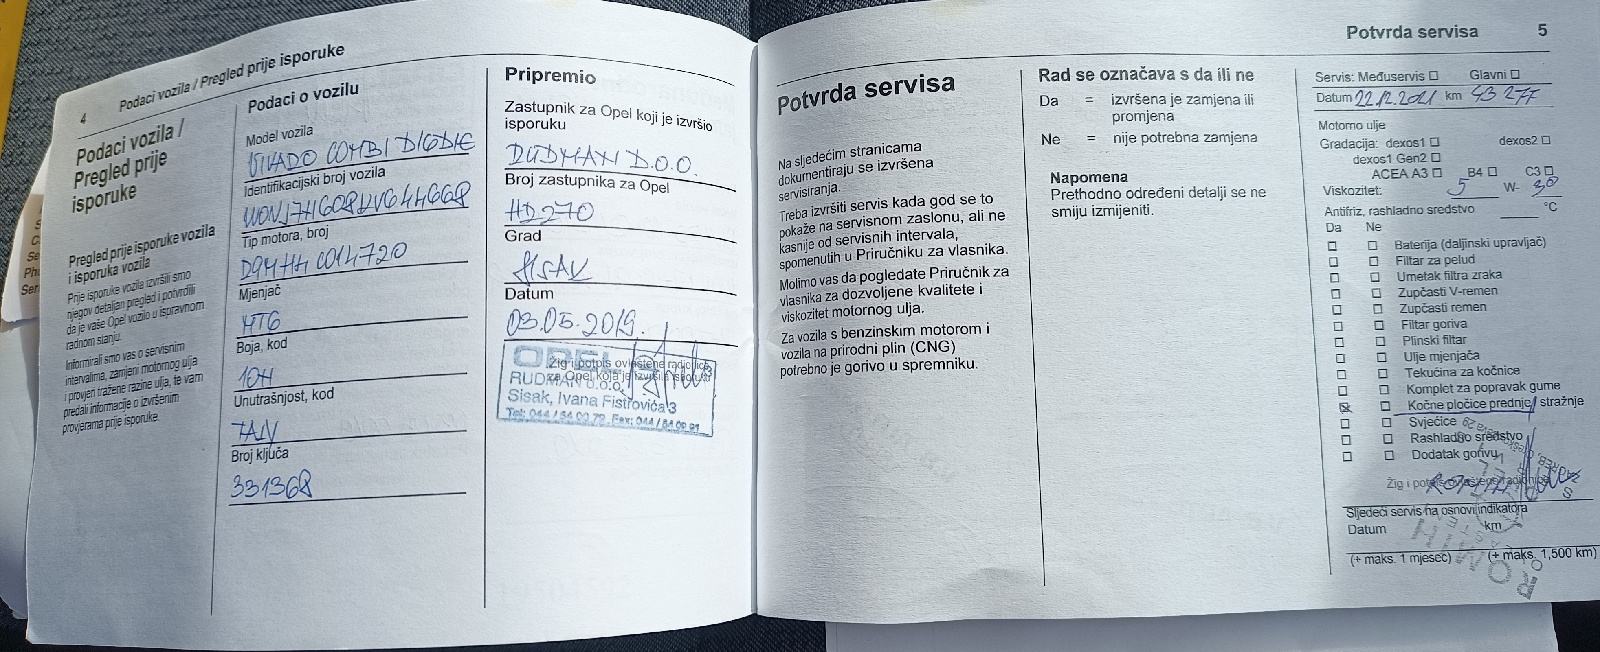 4
Podaci vozila / Pregled prije isporuke
Podaci vozila /
Pregled prije
isporuke
Pregled prije isporuke vozila
i isporuka vozila
Prije isporuke vozila izvršili smo
njegov detaljan pregled i potvrdili
da je vaše Opel vozilo u ispravnom
radnom stanju.
Informirali smo vas o servisnim
intervalima, zamjeni motornog ulja
i provjeri tražene razine ulja, te vam
predali informacije o izvršenim
provjerama prije isporuke.
Podaci o vozilu
Model vozila
VIVARO COMBI
Identifikacijski broj vozila
Tip motora, broj
Mjenjač
MT6
Boja, kod
10H
Unutrašnjost, kod
TAIV
Broj ključa
331368
Pripremio
Zastupnik za Opel koji je izvršio
isporuku
RUDMAN D.O.O.
Broj zastupnika za Opel
HD270
Grad
SISAK
Datum
03.05.2019.
Žig i potpis ovlaštene radionice
za Opel koja je izvršila isporuku
OPEL
RUDMAN d.o.o.
Sisak, Ivana Fistrovića 3
Potvrda servisa
5
Potvrda servisa
Na sljedećim stranicama
dokumentiraju se izvršena
servisiranja.
Treba izvršiti servis kada god se to
pokaže na servisnom zaslonu, ali ne
kasnije od servisnih intervala,
spomenutih u Priručniku za vlasnika.
Molimo vas da pogledate Priručnik za
vlasnika za dozvoljene kvalitete i
viskozitet motornog ulja.
Za vozila s benzinskim motorom i
vozila na prirodni plin (CNG)
potrebno je gorivo u spremniku.
Rad se označava s da ili ne
Da = izvršena je zamjena ili
promjena
Ne = nije potrebna zamjena
Napomena
Prethodno određeni detalji se ne
smiju izmijeniti.
Servis: Međuservis Glavni
Datum 22.12.2021 km 43 277
Motorno ulje
Gradacija: dexos1 dexos2
dexos1 Gen2
ACEA A3 B4 C3
Viskozitet: 5 W- 30
Antifriz, rashladno sredstvo °C
Da Ne
Baterija (daljinski upravljač)
Filtar za pelud
Umetak filtra zraka
Zupčasti V-remen
Zupčasti remen
Filtar goriva
Plinski filtar
Ulje mjenjača
Tekućina za kočnice
Komplet za popravak gume
Kočne pločice prednje/ stražnje
Svjećice
Rashladno sredstvo
Dodatak gorivu
Sljedeći servis na osnovi indikatora
Datum km
(+ maks. 1 mjesec) (+ maks. 1,500 km)